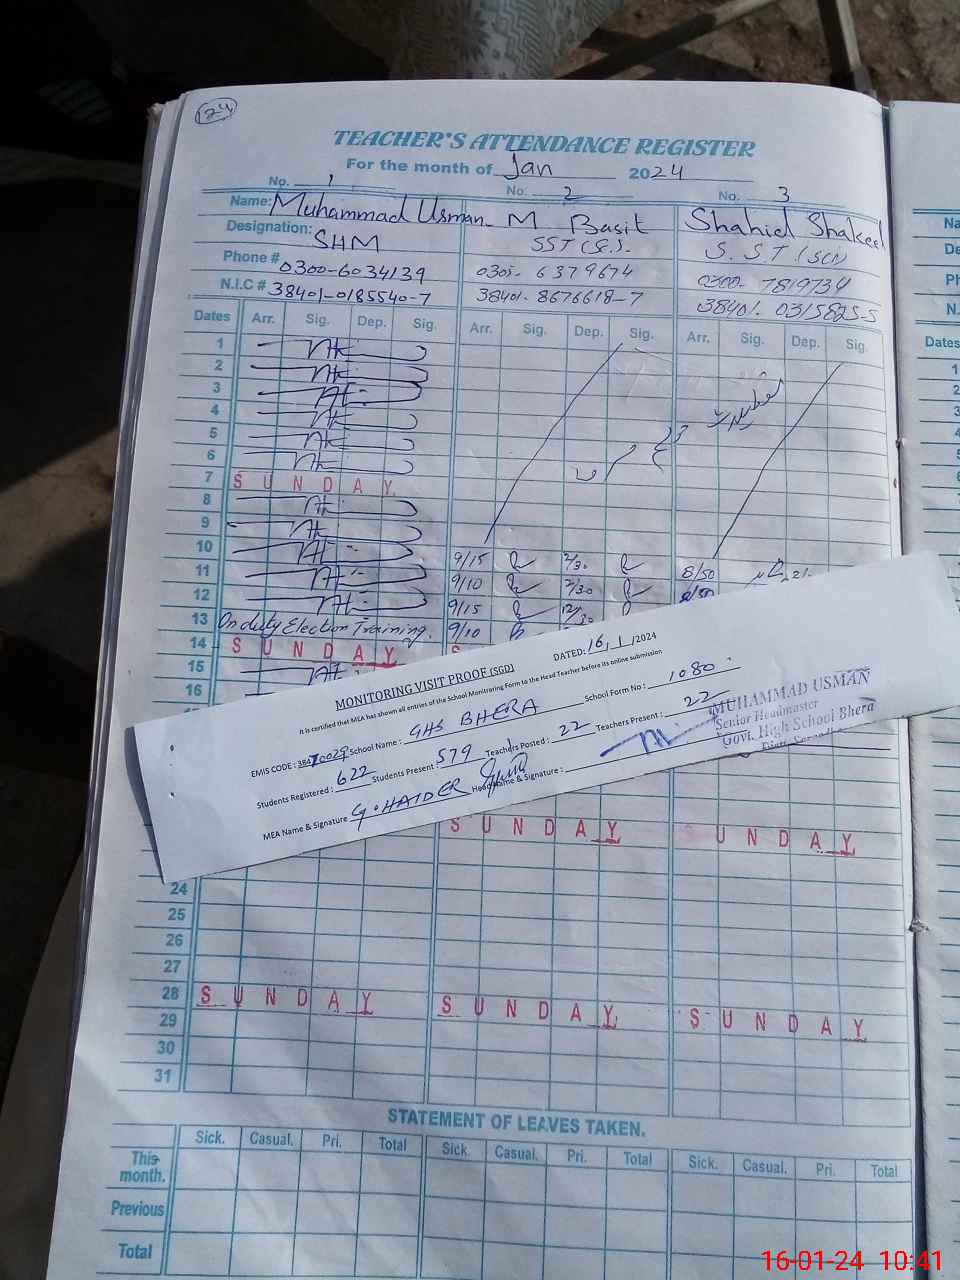 124
TEACHER'S ATTENDANCE REGISTER
For the month of Jan 2024
No. 1 No. 2 No. 3
Name: Muhammad Usman M Basit Shahid Shakeel
Designation: SHM SST (S.). S.S.T (SCI)
Phone # 0300-6034139 0305-6379674 0300-7819734
N.I.C # 38401-0185540-7 38401-8676618-7 38401-0315825-5
Dates Arr. Sig. Dep. Sig. Arr. Sig. Dep. Sig. Arr. Sig. Dep. Sig. Dates
1
2
3
4
5
6
7 SUNDAY
8
9
10 9/15 2/30
11 9/10 2/30 8/50
12 9/15 12/30
13 On duty Election Training. 9/10
14 SUNDAY S
15
16
MONITORING VISIT PROOF (SGD) DATED: 16/1/2024
It is certified that MEA has shown all entries of the School Monitroring Form to the Head Teacher before its online submission
EMIS CODE : School Name : GHS BHERA School Form No : 1080
Students Registered : 622 Students Present : 579 Teachers Posted : 22 Teachers Present : 22
MEA Name & Signature G. HAIDER Head Name & Signature :
MUHAMMAD USMAN
Senior Headmaster
Govt. High School Bhera
SUNDAY SUNDAY
24
25
26
27
28 SUNDAY SUNDAY SUNDAY
29
30
31
STATEMENT OF LEAVES TAKEN.
Sick. Casual. Pri. Total Sick. Casual. Pri. Total Sick. Casual. Pri. Total
This month.
Previous
Total
16-01-24 10:41